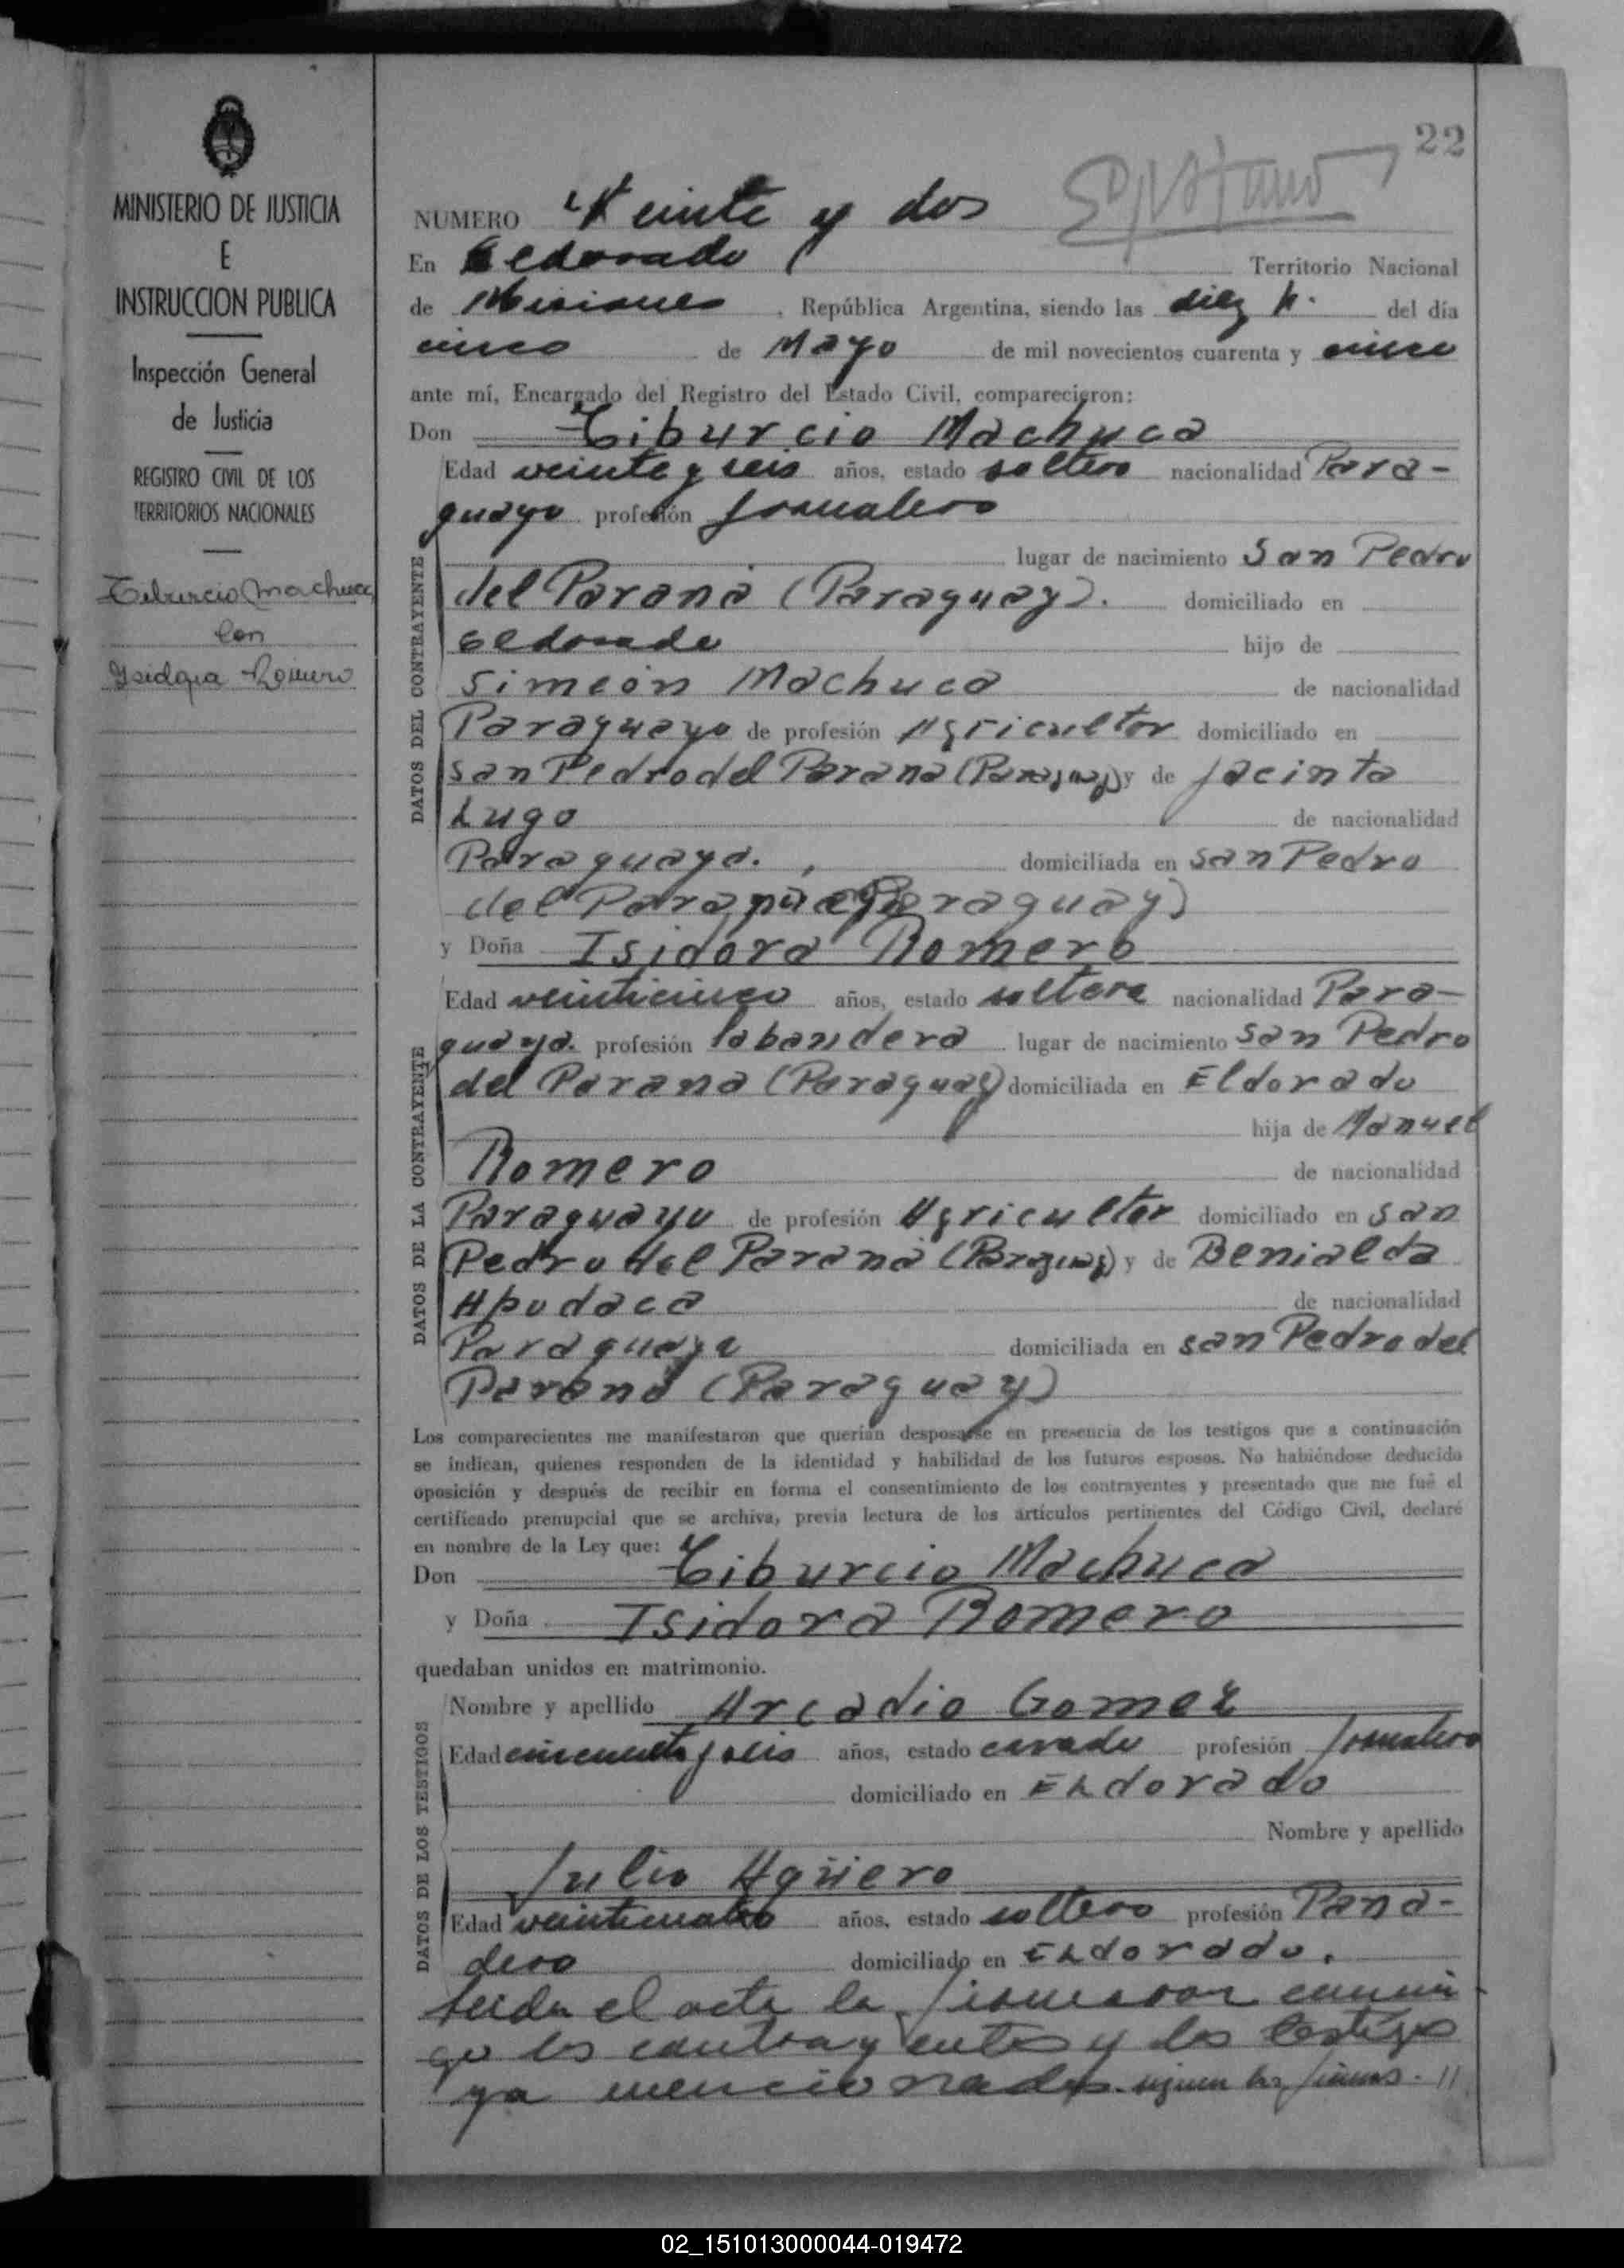 22
MINISTERIO DE JUSTICIA
E
INSTRUCCION PUBLICA
Inspección General
de Justicia
REGISTRO CIVIL DE LOS
TERRITORIOS NACIONALES
Tiburcio Machuca
con
Isidora Romero
NUMERO Veinte y dos
En Eldorado Territorio Nacional
de Misiones, República Argentina, siendo las diez h. del día
cinco de Mayo de mil novecientos cuarenta y cinco
ante mí, Encargado del Registro del Estado Civil, comparecieron:
Don Tiburcio Machuca
DATOS DEL CONTRAYENTE
Edad veinte y seis años, estado soltero nacionalidad Para-
guayo profesión Jornalero
lugar de nacimiento San Pedro
del Paraná (Paraguay). domiciliado en
Eldorado hijo de
Simeón Machuca de nacionalidad
Paraguayo de profesión Agricultor domiciliado en
San Pedro del Paraná (Paraguay) y de Jacinta
Lugo de nacionalidad
Paraguaya. domiciliada en San Pedro
del Paraná (Paraguay)
y Doña Isidora Romero
DATOS DE LA CONTRAYENTE
Edad veinticinco años, estado soltera nacionalidad Para-
guaya. profesión labandera lugar de nacimiento San Pedro
del Paraná (Paraguay) domiciliada en Eldorado
hija de Manuel
Romero de nacionalidad
Paraguayo de profesión Agricultor domiciliado en San
Pedro del Paraná (Paraguay) y de Benialda
Apodaca de nacionalidad
Paraguaya domiciliada en San Pedro del
Paraná (Paraguay)
Los comparecientes me manifestaron que querían desposarse en presencia de los testigos que a continuación
se indican, quienes responden de la identidad y habilidad de los futuros esposos. No habiéndose deducido
oposición y después de recibir en forma el consentimiento de los contrayentes y presentado que me fué el
certificado prenupcial que se archiva, previa lectura de los artículos pertinentes del Código Civil, declaré
en nombre de la Ley que:
Don Tiburcio Machuca
y Doña Isidora Romero
quedaban unidos en matrimonio.
DATOS DE LOS TESTIGOS
Nombre y apellido Arcadio Gomez
Edad cincuenta y seis años, estado casado profesión Jornalero
domiciliado en Eldorado
Nombre y apellido
Julio Agüero
Edad veinticuatro años, estado soltero profesión Pana-
dero domiciliado en Eldorado.
Leida el acta la firmaron conmi
go los contrayentes y los testigos
ya mencionados. siguen las firmas. //
02_151013000044-019472